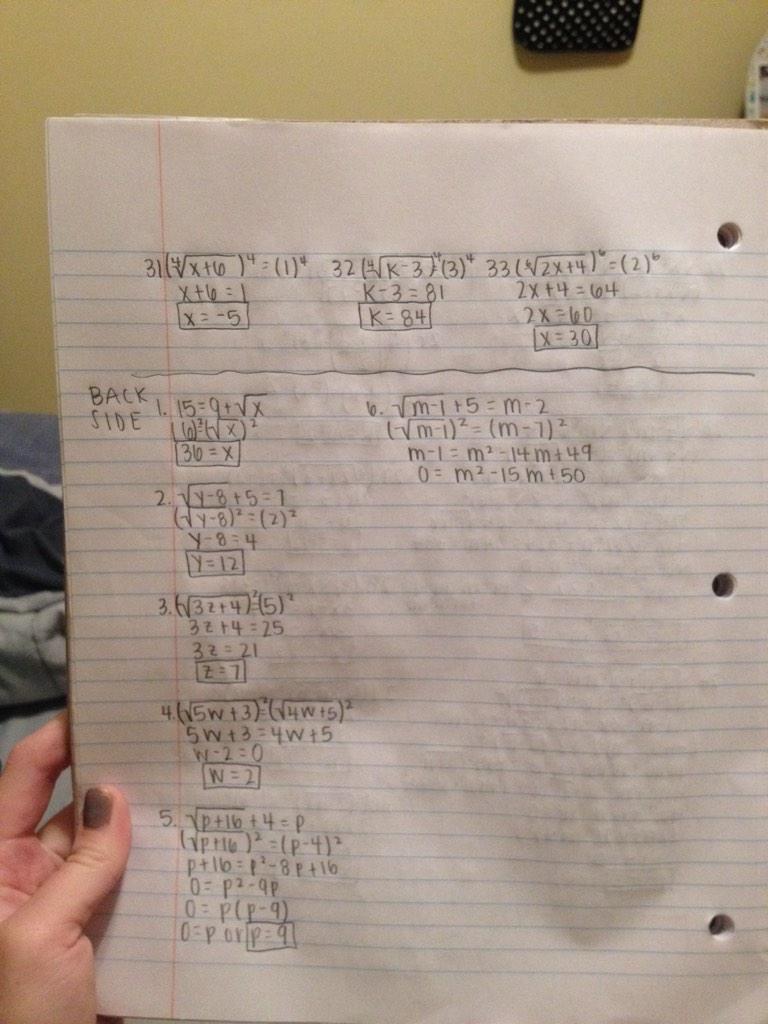 31 (∜x+6)⁴ = (1)⁴ 32 (∜K-3)⁴=(3)⁴ 33 (⁶√2x+4)⁶ = (2)⁶
x+6 = 1 K-3 = 81 2x+4 = 64
x = -5 K = 84 2x = 60
x = 30
BACK SIDE
1. 15 = 9 + √x
(6)²=(√x)²
36 = x
2. √y-8 + 5 = 7
(√y-8)² = (2)²
y-8 = 4
y = 12
3. (√3z+4)²=(5)²
3z+4 = 25
3z = 21
z = 7
4. (√5w+3)²=(√4w+5)²
5w+3 = 4w+5
w-2 = 0
w = 2
5. √p+16 + 4 = p
(√p+16)² = (p-4)²
p+16 = p²-8p+16
0 = p²-9p
0 = p(p-9)
0 = p or p = 9
6. √m-1 + 5 = m-2
(√m-1)² = (m-7)²
m-1 = m²-14m+49
0 = m²-15m+50